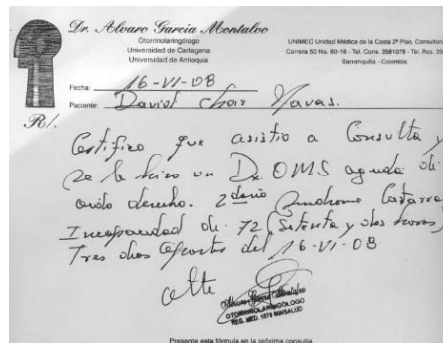 Dr. Alvaro García Montalvo
Otorrinolaringólogo
Universidad de Cartagena
Universidad de Antioquia
UNIMEC Unidad Médica de la Costa 2º Piso, Consultori
Carrera 50 No. 80-18 - Tel. Cons. 3581078 - Tel. Res. 35
Barranquilla - Colombia
Fecha: 16-VI-08
Paciente: David Char Navas.
R/.
Certifico que asistio a Consulta y
se le hizo un Dx. OMS aguda de
oido derecho. 2dario Sindrome Catarral
Incapacidad de 72 (Setenta y dos horas)
Tres dias apartir del 16-VI-08
Atte
Alvaro García Montalvo
OTORRINOLARINGOLOGO
REG. MED. 1979 MINSALUD
Presente esta fórmula en la próxima consulta